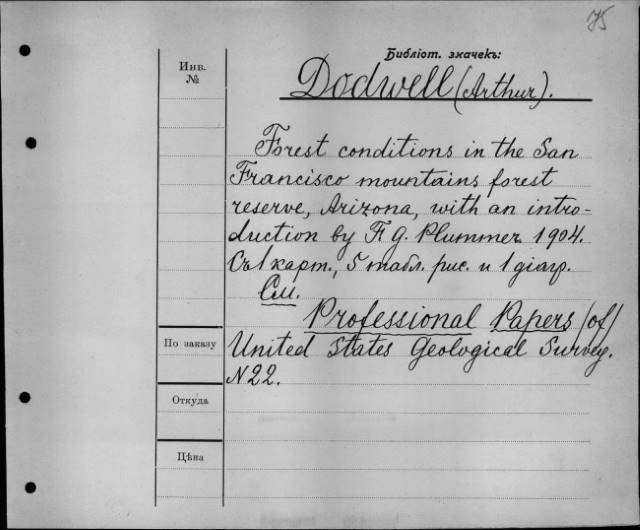 75
Библіот. значекъ:
Инв.
№
Dodwell (Arthur).
Forest conditions in the San
Francisco mountains forest
reserve, Arizona, with an intro-
duction by F. G. Plummer. 1904.
Съ 1 карт., 5 табл. рис. и 1 діагр.
См.
Professional Papers /of/
По заказу
United States Geological Survey.
N 22.
Откуда
Цѣна